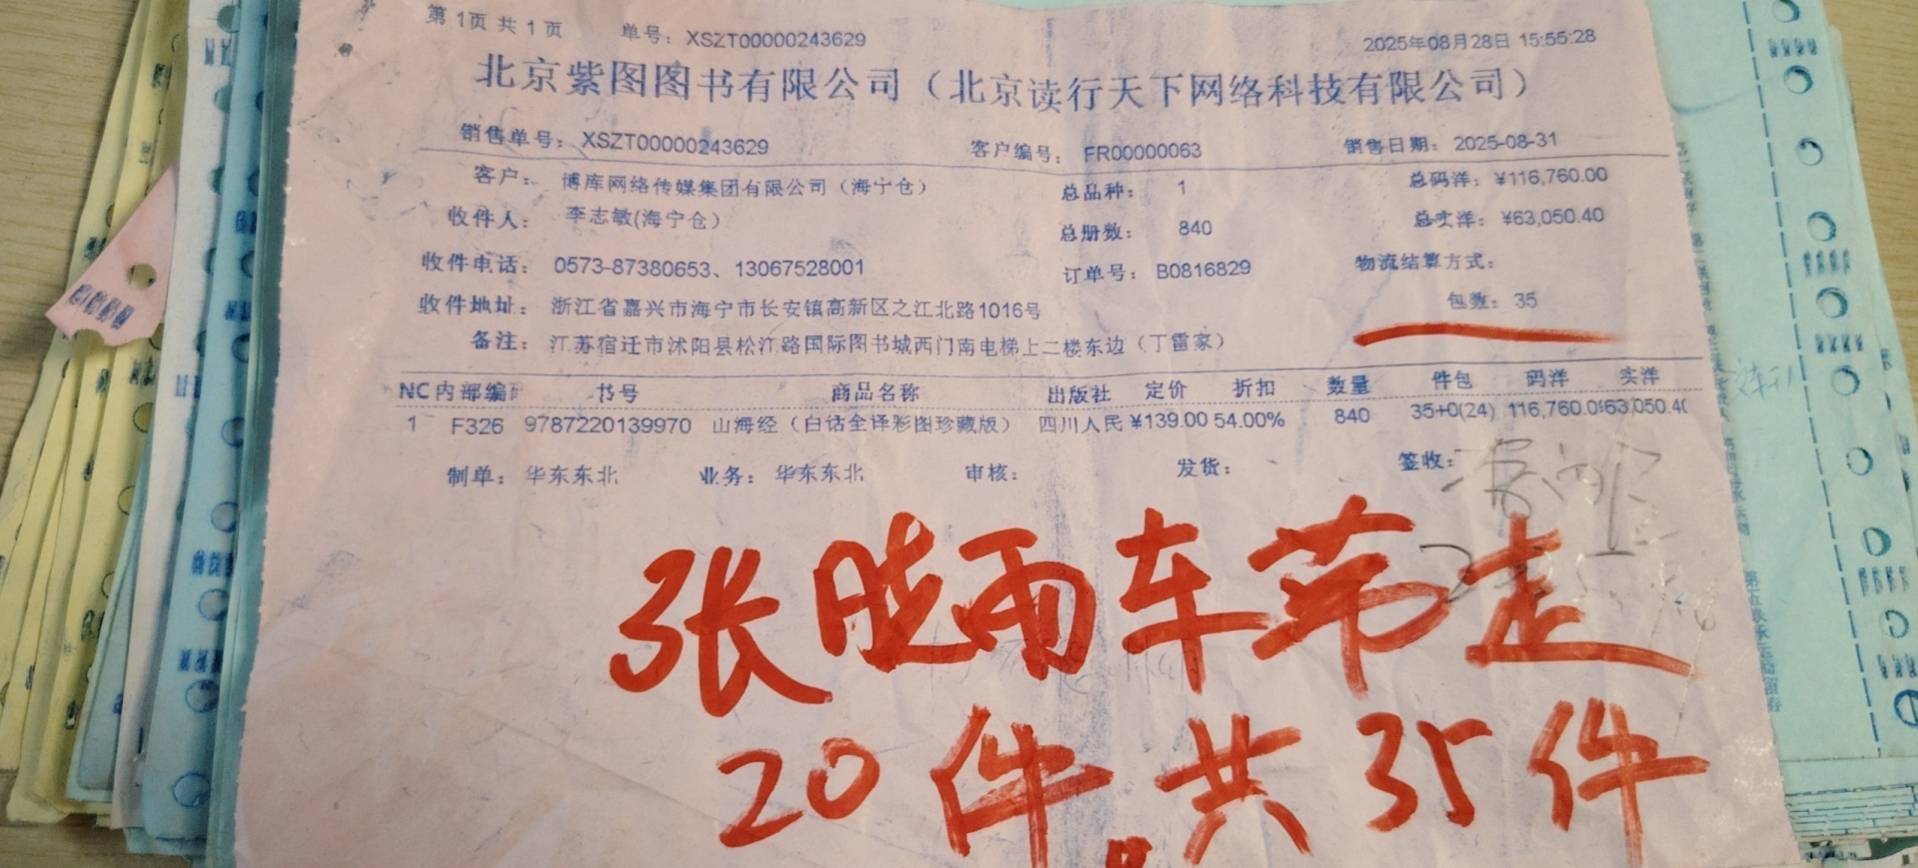 第 1页 共 1 页 单号：XSZT00000243629 2025年08月28日 15:55:28
北京紫图图书有限公司（北京读行天下网络科技有限公司）
销售单号：XSZT00000243629 客户编号：FR00000063 销售日期：2025-08-31
客户：博库网络传媒集团有限公司（海宁仓） 总品种：1 总码洋：¥116,760.00
收件人：李志敏(海宁仓） 总册数：840 总实洋：¥63,050.40
收件电话：0573-87380653、13067528001 订单号：B0816829 物流结算方式：
收件地址：浙江省嘉兴市海宁市长安镇高新区之江北路1016号 包数：35
备注：江苏宿迁市沭阳县松江路国际图书城西门南电梯上二楼东边（丁雷家）
NC 内部编 书号 商品名称 出版社 定价 折扣 数量 件包 码洋 实洋
1 F326 9787220139970 山海经（白话全译彩图珍藏版） 四川人民 ¥139.00 54.00% 840 35+0(24) 116,760.0 63,050.4
制单：华东东北 业务：华东东北 审核： 发货： 签收：
张晓雨车带走
20件.共35件